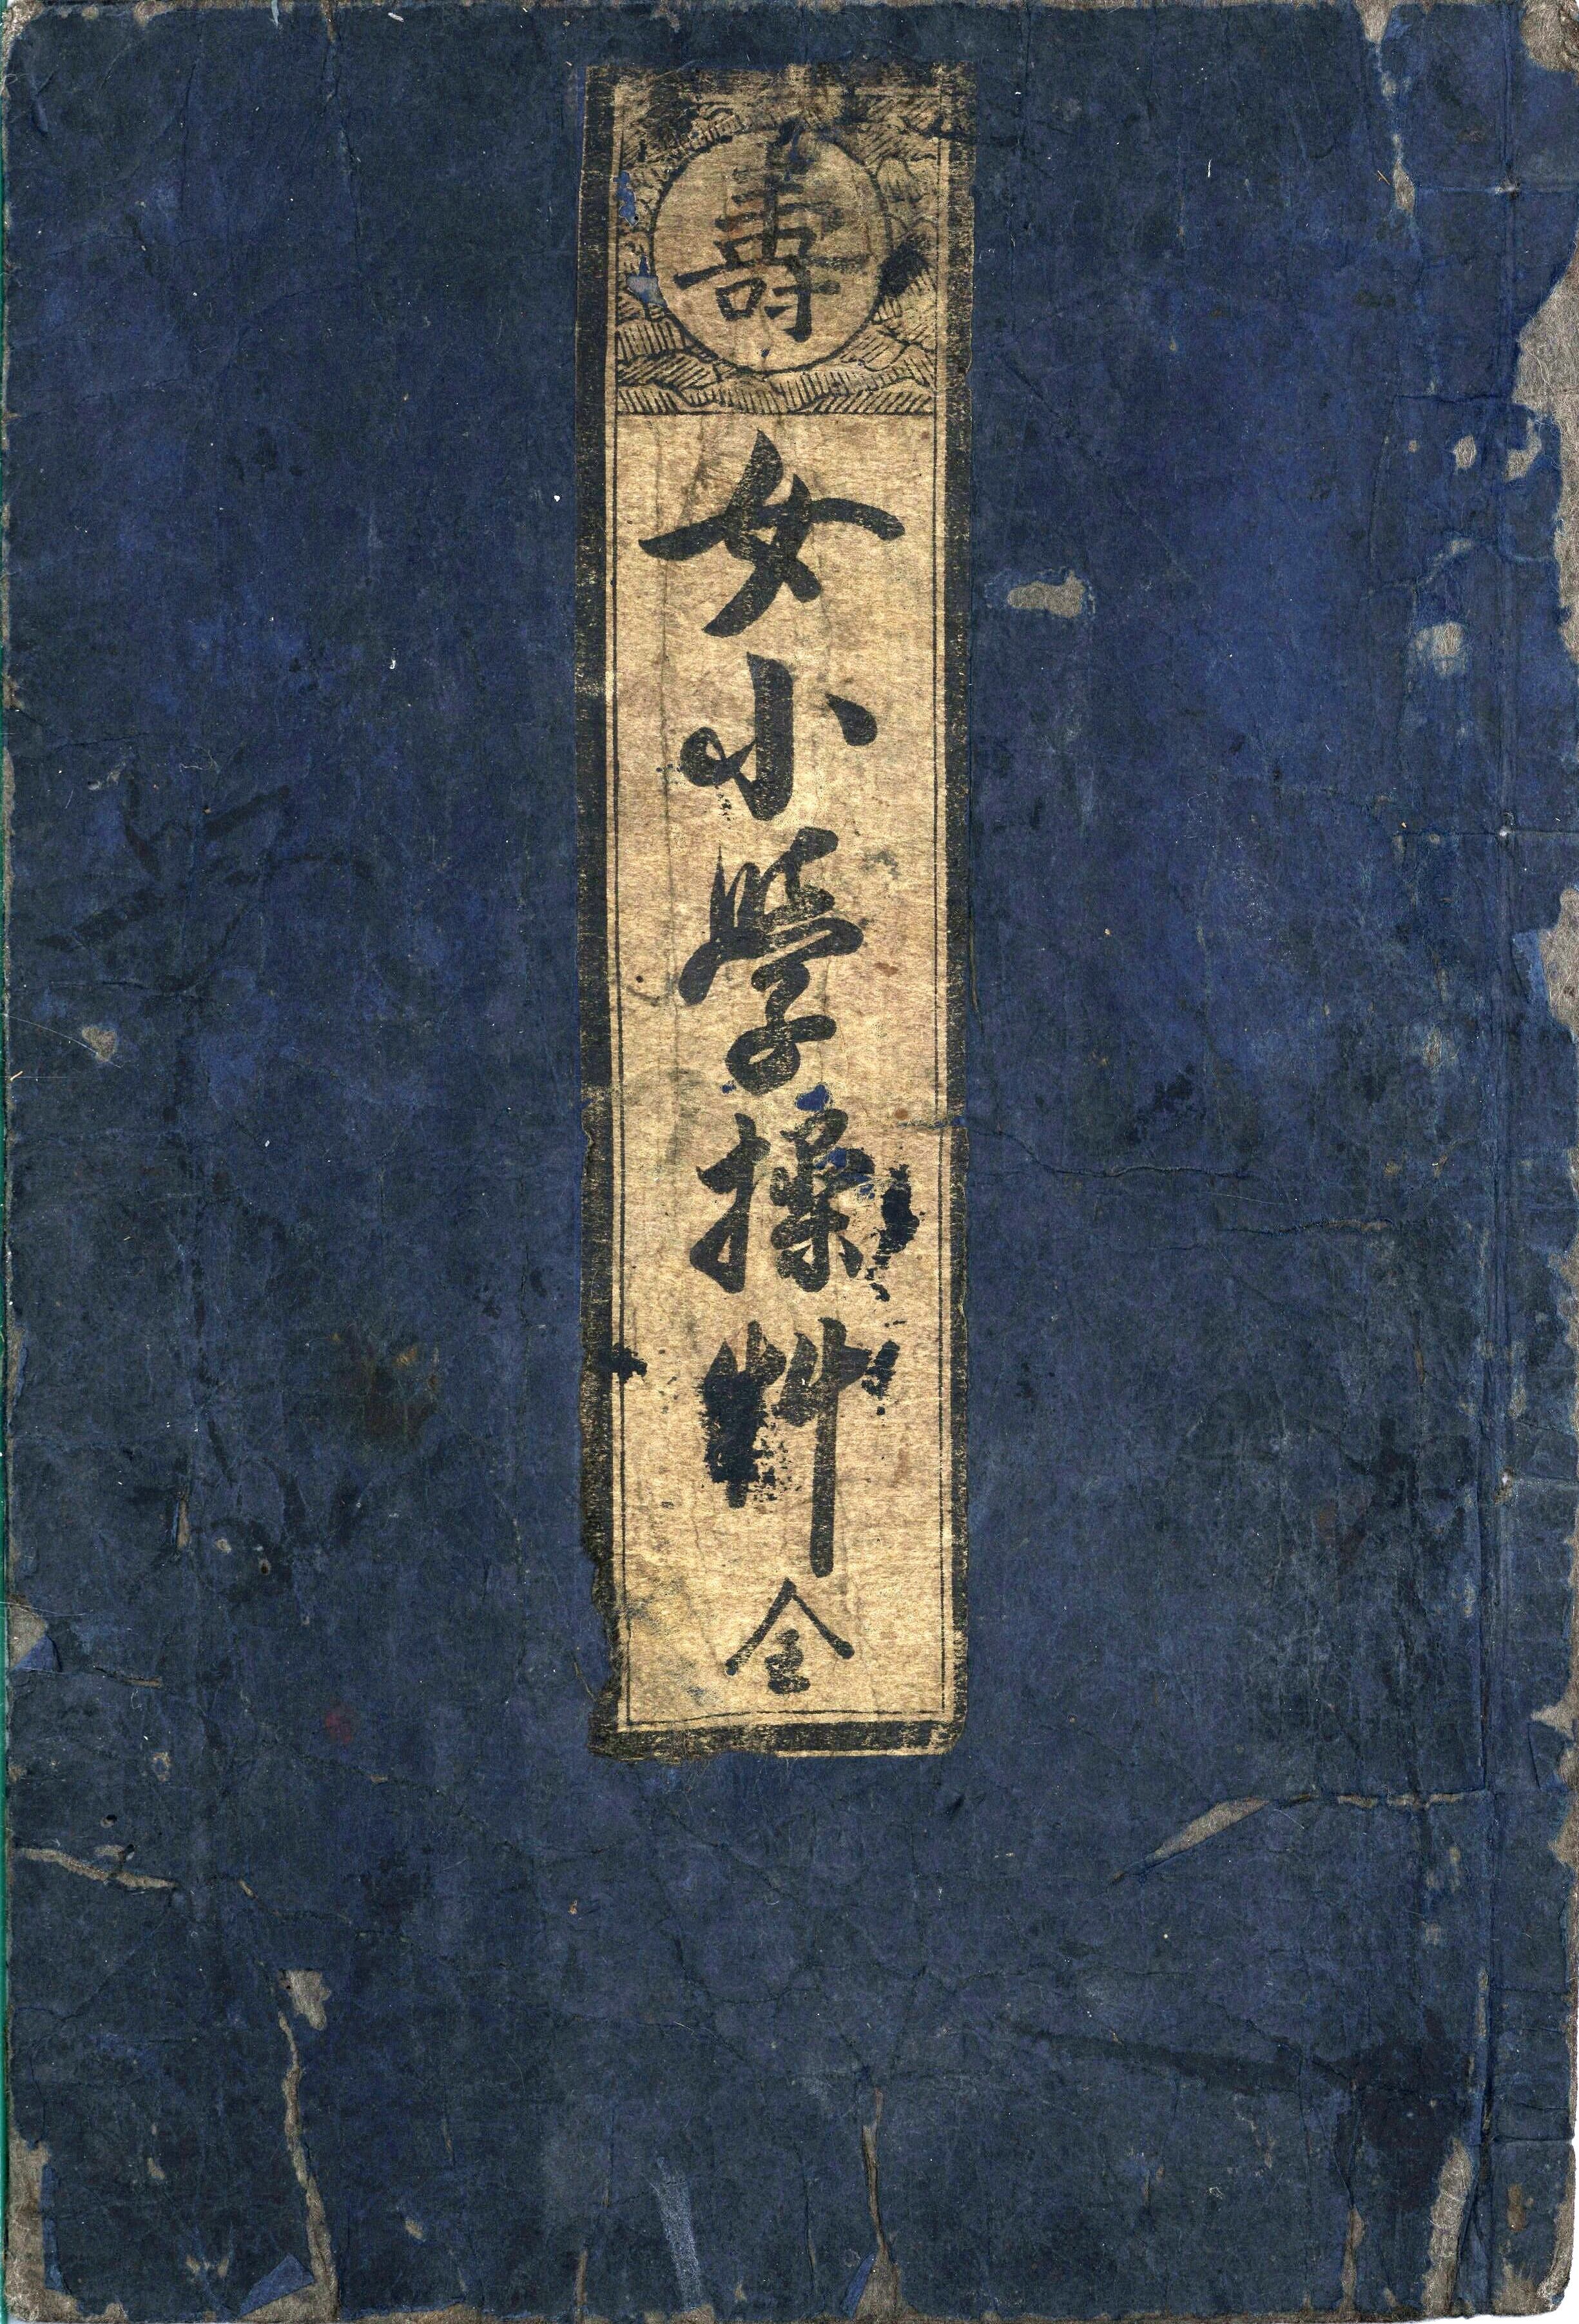 壽
女小學操艸 全